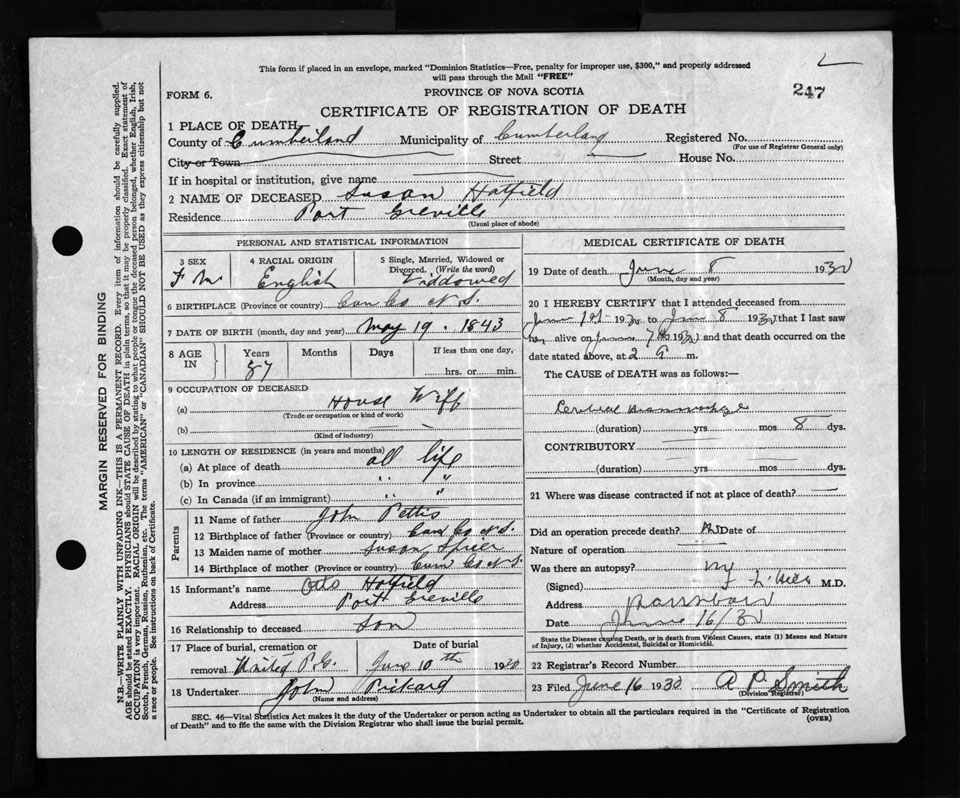 This form if placed in an envelope, marked "Dominion Statistics—Free, penalty for improper use, $300," and properly addressed
will pass through the Mail "FREE"
247
FORM 6.
PROVINCE OF NOVA SCOTIA
CERTIFICATE OF REGISTRATION OF DEATH
1 PLACE OF DEATH
County of Cumberland Municipality of Cumberland Registered No.
(For use of Registrar General only)
City or Town Street House No.
If in hospital or institution, give name
2 NAME OF DECEASED Susan Hatfield
Residence Port Greville
(Usual place of abode)
PERSONAL AND STATISTICAL INFORMATION
3 SEX 4 RACIAL ORIGIN 5 Single, Married, Widowed or
Divorced. (Write the word)
F M English Widdowed
6 BIRTHPLACE (Province or country) Cum Co N.S.
7 DATE OF BIRTH (month, day and year) May 19. 1843
8 AGE IN Years Months Days If less than one day,
87 hrs. or min.
9 OCCUPATION OF DECEASED
(a) House Wiff
(Trade or occupation or kind of work)
(b)
(Kind of industry)
10 LENGTH OF RESIDENCE (in years and months)
(a) At place of death all life
(b) In province " "
(c) In Canada (if an immigrant) " "
Parents
11 Name of father John Pettis
12 Birthplace of father (Province or country) Cum Co N.S.
13 Maiden name of mother Susan Spicer
14 Birthplace of mother (Province or country) Cum Co N.S.
15 Informant's name Otto Hatfield
Address Port Greville
16 Relationship to deceased Son
17 Place of burial, cremation or Date of burial
removal United P.G. June 10th 1930
18 Undertaker John Pickard
(Name and address)
MEDICAL CERTIFICATE OF DEATH
19 Date of death June 8 1930
(Month, day and year)
20 I HEREBY CERTIFY that I attended deceased from
June 1st 1930 to June 8 1930 that I last saw
her alive on June 7th 1930 and that death occurred on the
date stated above, at 2 a m.
The CAUSE of DEATH was as follows:—
(duration) yrs mos 8 dys.
CONTRIBUTORY
(duration) yrs mos dys.
21 Where was disease contracted if not at place of death?
Did an operation precede death? No Date of
Nature of operation
Was there an autopsy?
(Signed) M.D.
Address Parrsboro
Date June 16/30
State the Disease causing Death, or in death from Violent Causes, state (1) Means and Nature
of Injury, (2) whether Accidental, Suicidal or Homicidal.
22 Registrar's Record Number
23 Filed June 16 1930 A P Smith
(Division Registrar)
SEC. 46—Vital Statistics Act makes it the duty of the Undertaker or person acting as Undertaker to obtain all the particulars required in the "Certificate of Registration
of Death" and to file the same with the Division Registrar who shall issue the burial permit.
(OVER)
MARGIN RESERVED FOR BINDING
N.B.—WRITE PLAINLY WITH UNFADING INK—THIS IS A PERMANENT RECORD. Every item of information should be carefully supplied.
AGE should be stated EXACTLY. PHYSICIANS should STATE CAUSE OF DEATH in plain terms, so that it may be properly classified. Exact statement of
OCCUPATION is very important. RACIAL ORIGIN will be described by stating to what people or tongue the deceased person belonged, whether English, Irish,
Scotch, French, German, Russian, Ruthenian, etc. The terms "AMERICAN" or "CANADIAN" SHOULD NOT BE USED as they express citizenship but not
a race or people. See instructions on back of Certificate.